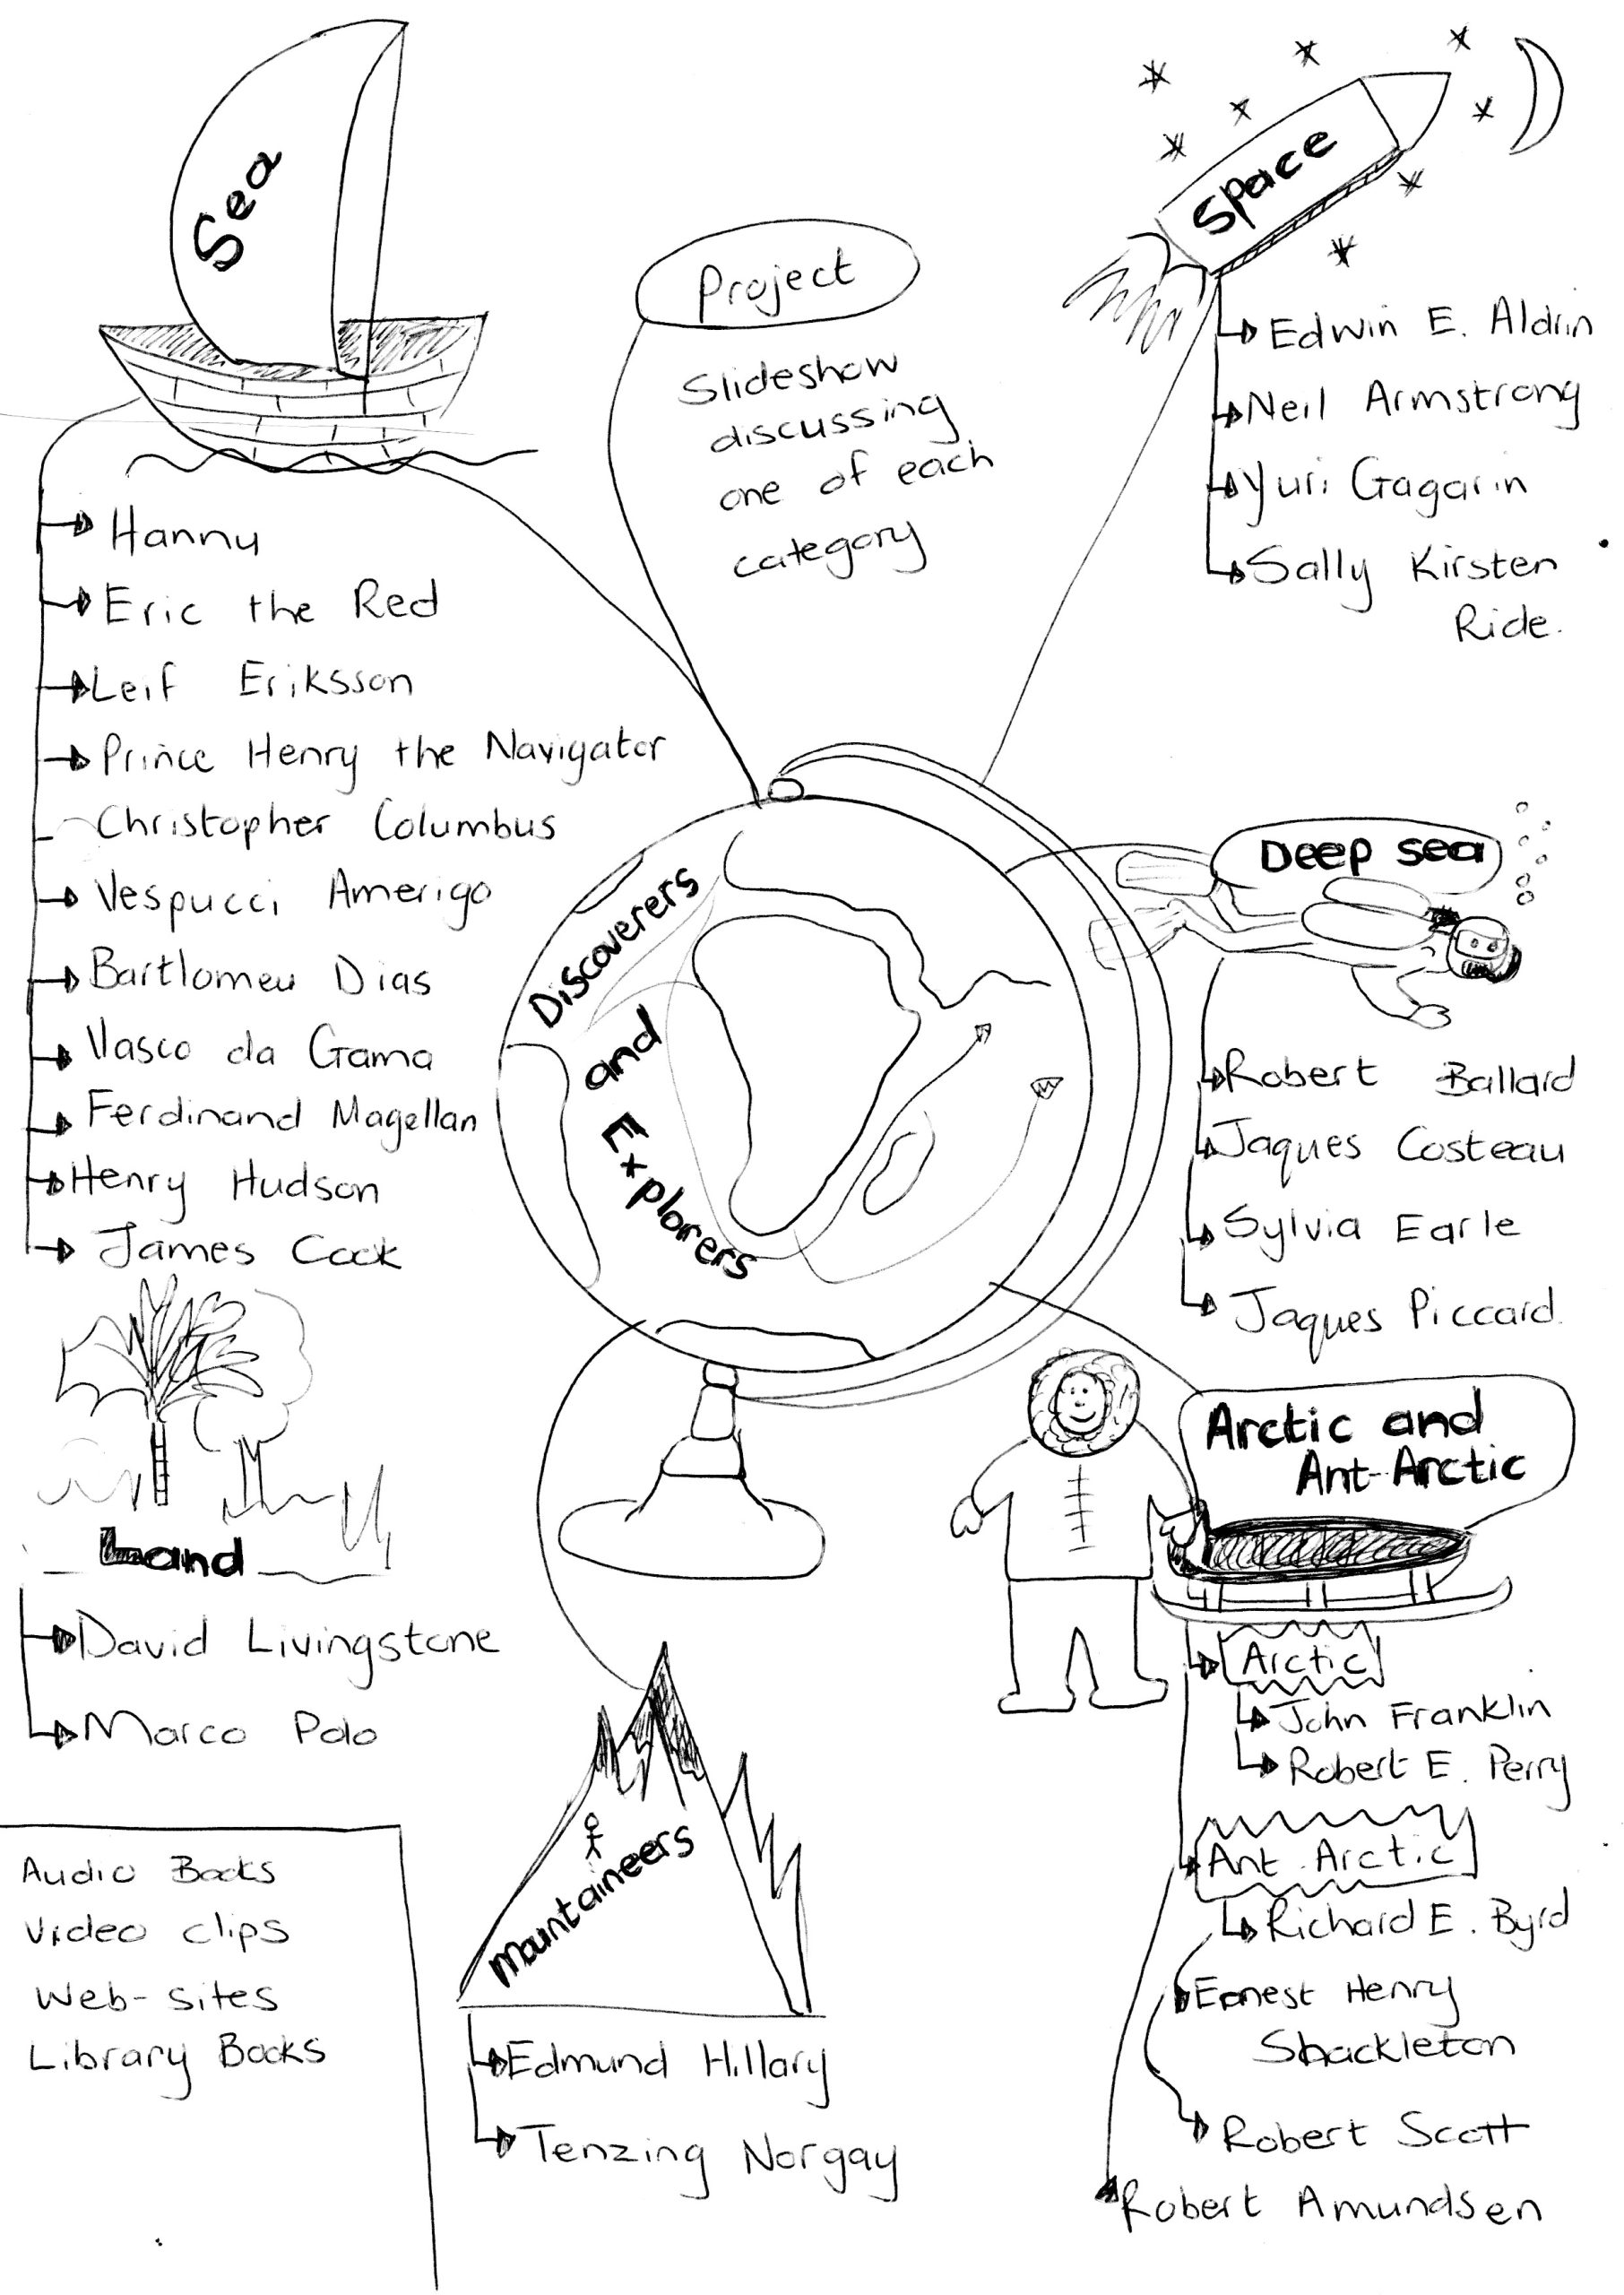 Sea
Hannu
Eric the Red
Leif Eriksson
Prince Henry the Navigator
Christopher Columbus
Vespucci Amerigo
Bartlomeu Dias
Vasco da Gama
Ferdinand Magellan
Henry Hudson
James Cook
Project
Slideshow
discussing
one of each
category
Space
Edwin E. Aldrin
Neil Armstrong
Yuri Gagarin
Sally Kirsten
Ride.
Discoverers
and
Explorers
Deep sea
Robert Ballard
Jaques Costeau
Sylvia Earle
Jaques Piccard.
Land
David Livingstone
Marco Polo
Arctic and
Ant-Arctic
Arctic
John Franklin
Robert E. Perry
Ant.Arctic
Richard E. Byrd
Ernest Henry
Shackleton
Robert Scott
Robert Amundsen
Mountaineers
Edmund Hillary
Tenzing Norgay
Audio Books
Video clips
Web-sites
Library Books